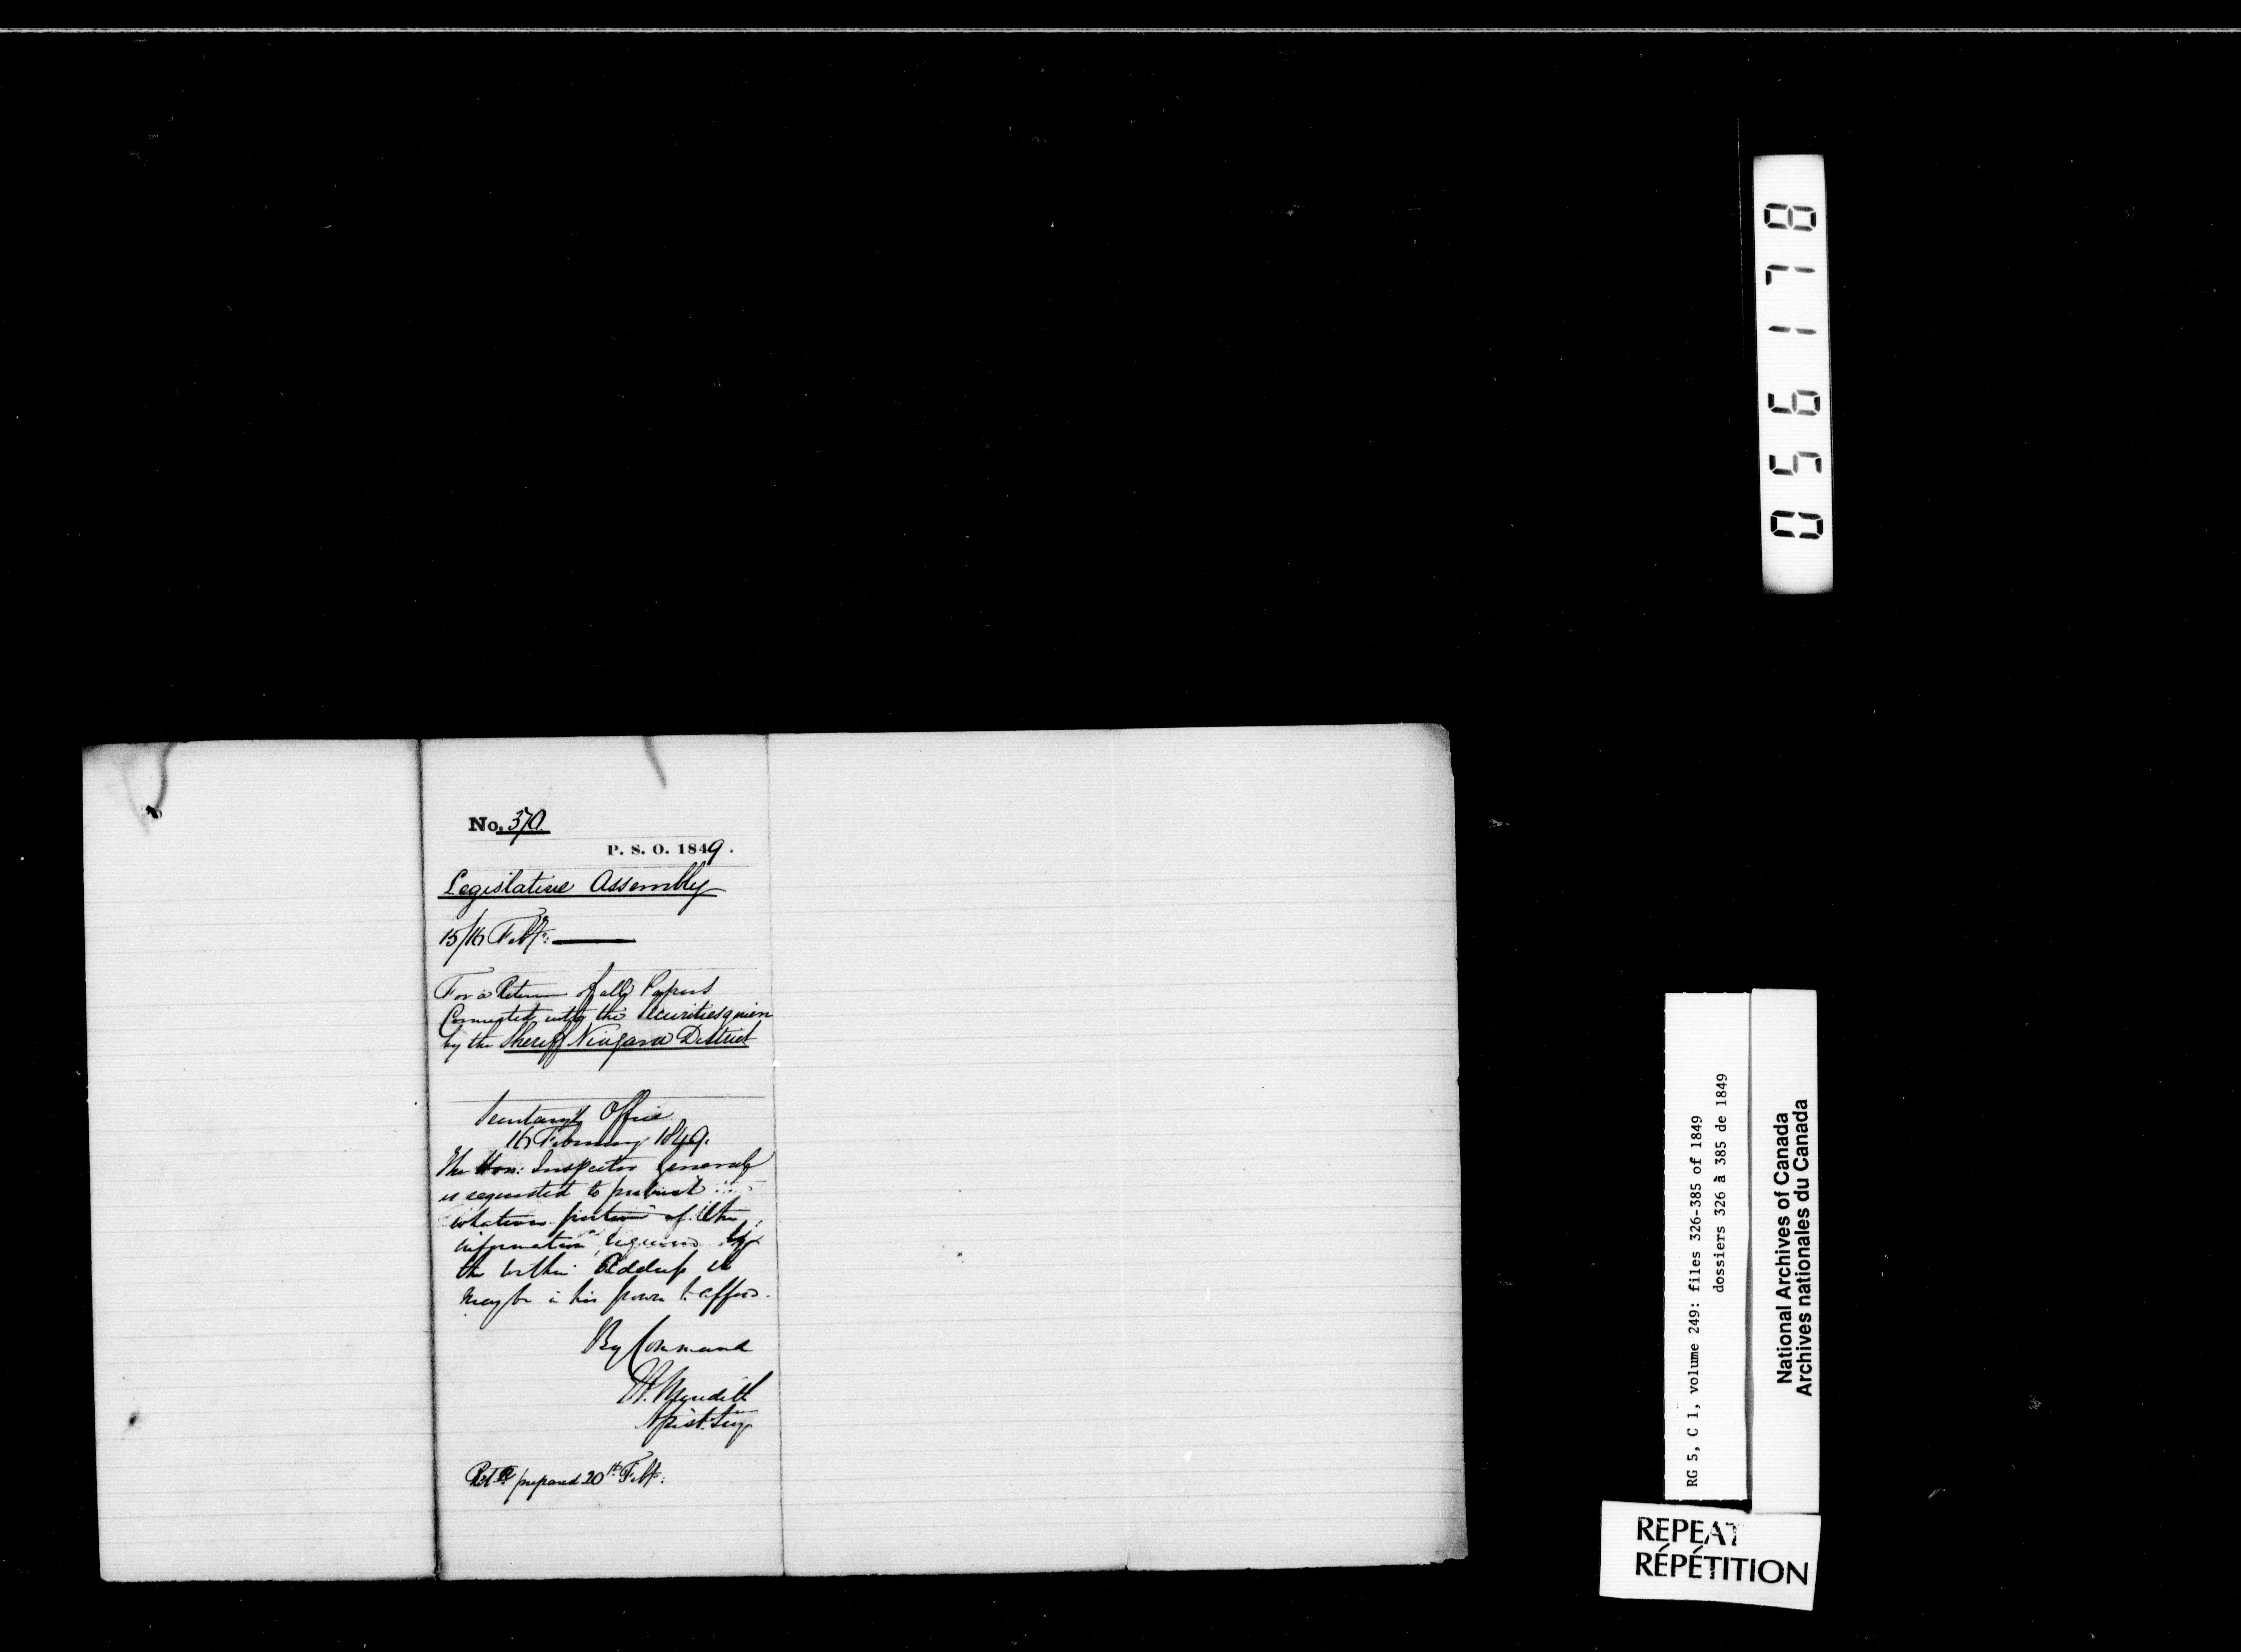 No. 370.
P. S. O. 1849.
Legislative Assembly
15/16 Feby:
For a Return of all Papers
Connected with the Securities given
by the Sheriff Niagara District
Secretary's Office
16 February 1849.
The Hon: Inspector General
is requested to
whatever portion of the
information required by
the within Address it
may be in his power to afford.
By Command
Meredith
Assist. Secy
Ret prepared 20th Feby:
056178
RG 5, C 1, volume 249: files 326-385 of 1849
dossiers 326 à 385 de 1849
National Archives of Canada
Archives nationales du Canada
REPEAT
RÉPÉTITION